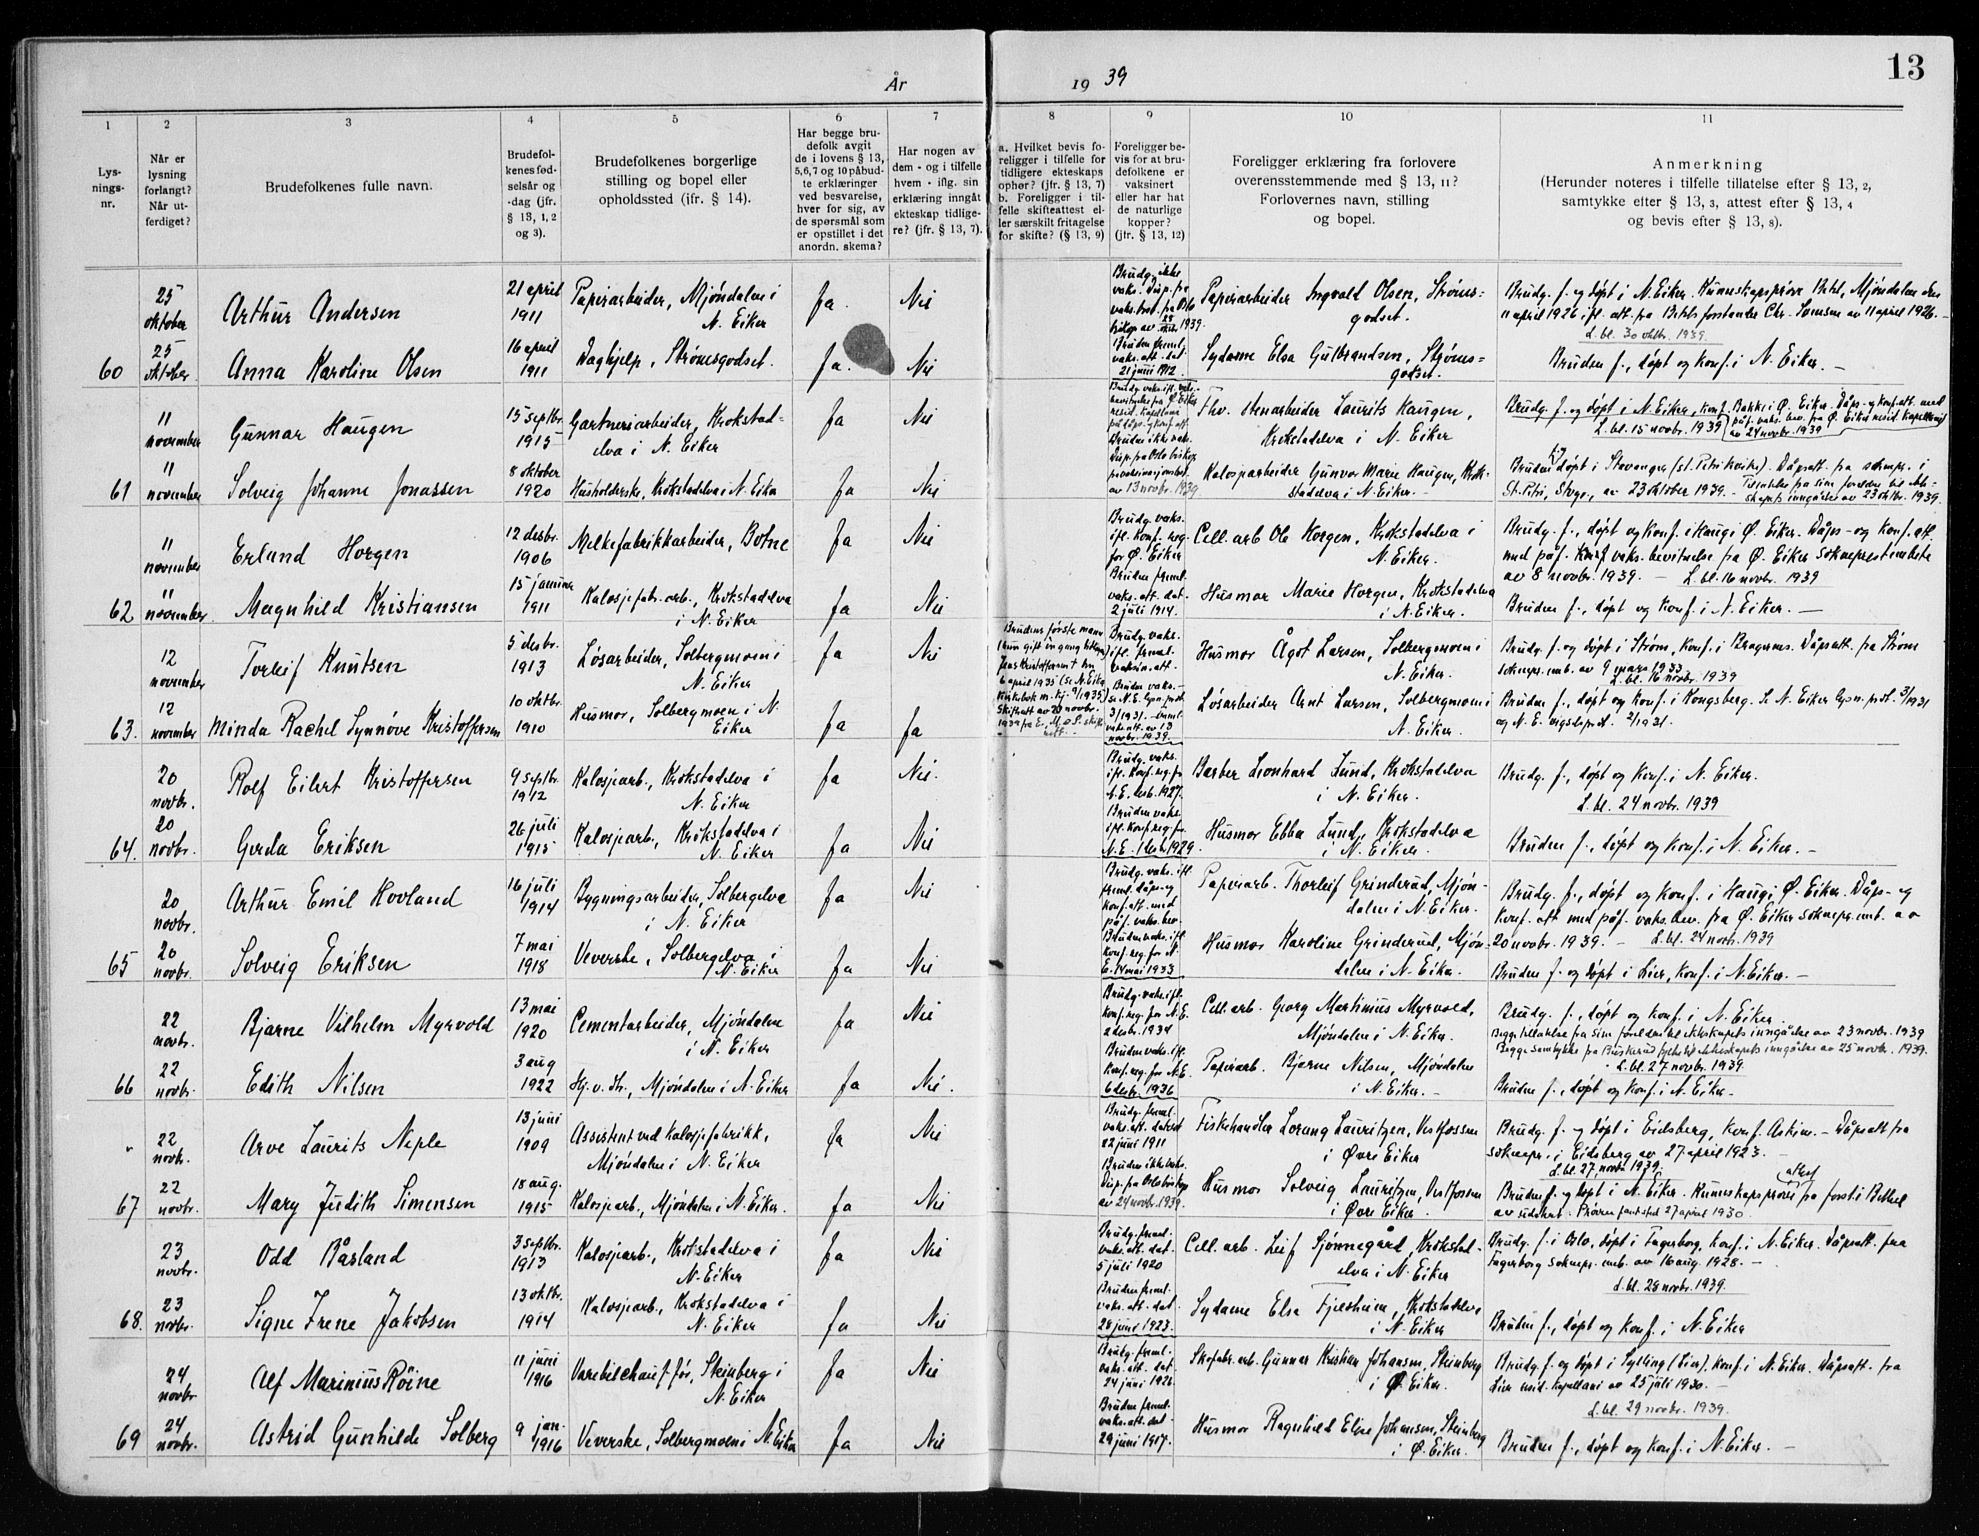 13
År 1939
1 2 3 4 5 6 7 8 9 10 11
Lys-
nings-
nr.
Når er
lysning
forlangt?
Når ut-
ferdiget?
Brudefolkenes fulle navn.
Brudefol-
kenes fød-
selsår og
-dag (jfr.
§ 13, 1, 2
og 3).
Brudefolkenes borgerlige
stilling og bopel eller
opholdssted (jfr. § 14).
Har begge bru-
defolk avgit
de i lovens § 13,
5,6,7 og 10 påbud-
te erklæringer
ved besvarelse,
hver for sig, av
de spørsmål som
er opstillet i det
anordn. skema?
Har nogen av
dem - og i tilfelle
hvem - iflg. sin
erklæring inngått
ekteskap tidlige-
re? (jfr. § 13, 7).
a. Hvilket bevis fo-
religger i tilfelle for
tidligere ekteskaps
ophør? (jfr. § 13, 7)
b. Foreligger i til-
felle skifteattest el-
ler særskilt fritagelse
for skifte? (§ 13, 9)
Foreligger be-
vis for at bru-
defolkene er
vaksinert
eller har hat
de naturlige
kopper?
(jfr. § 13, 12)
Foreligger erklæring fra forlovere
overensstemmende med § 13, 11?
Forlovernes navn, stilling
og bopel.
Anmerkning
(Herunder noteres i tilfelle tillatelse efter § 13, 2,
samtykke efter § 13, 3, attest efter § 13, 4
og bevis efter § 13, 8).
25 oktober Arthur Andersen 21 april 1911 Papirarbeider, Mjöndalen i N. Eiker Ja. Nei
Brudg. ikke vaks. Disp. fra
Papirarbeider Ingvald Olsen, Ströms-
godset.
Brudg. f. og döpt i N. Eiker. Kunnskapspröve Mjöndalen den
11 april 1926 ifl. att. fra av 11 april 1926. -
L. bl. 30 oktbr. 1939.
60 25 oktober Anna Karoline Olsen 16 april 1911 Daghjelp, Strömsgodset. Ja. Nei
Bruden freml. vaks. att. dat. 21 juni 1912.
Sydame Elsa Gulbrandsen, Ströms-
godset.
Bruden f., döpt og konf. i N. Eiker. -
11 november Gunnar Haugen 15 septbr. 1915 Gartneriarbeider, Krokstad-
elva i N. Eiker Ja Nei
Fhv. stenarbeider Laurits Haugen,
Krokstadelva i N. Eiker
Brudg. f. og döpt i N. Eiker, konf. Bakke i Ø. Eiker. Dåps- og konf. att. med
L. bl. 15 novbr. 1939 påf. vaks. bev. fra Ø. Eiker resid. kapellani
av 24 novbr. 1939
61 11 november Solveig Johanne Jonassen 8 oktober 1920 Husholderske, Krokstadelva i N. Eiker Ja Nei
Bruden ikke vaks. Disp. fra Oslo av 13 novbr. 1939
Kalosjearbeider Gunvor Marie Haugen, Krok-
stadelva i N. Eiker. -
Bruden f. og döpt i Stavanger (St. Petri kirke). Dåpsatt. fra soknepr. i
St. Petri, Stvgr., av 23 oktober 1939. - Tillatelse fra sine foreldre til ekte-
skapets inngåelse av 23 oktbr. 1939.
11 november Erlund Horgen 12 desbr. 1906 Melkefabrikkarbeider, Botne Ja Nei
Brudg. vaks. ifl. konf. reg. for Ø. Eiker
Cell. arb. Ole Horgen, Krokstadelva i
N. Eiker.
Brudg. f., döpt og konf. i Haug i Ø. Eiker. Dåps- og konf. att.
med påf. vaks. bevitnelse fra Ø. Eiker sokneprestembete
av 8 novbr. 1939. - L. bl. 16 novbr. 1939
62 11 november. Magnhild Kristiansen 15 januar 1911 Kalosjefabr. arb., Krokstadelva
i N. Eiker Ja Nei
Bruden freml. vaks. att. dat. 2 juli 1914.
Husmor Marie Horgen, Krokstadelva
i N. Eiker.
Bruden f., döpt og konf. i N. Eiker. -
12 november Torleif Knutsen 5 desbr. 1913 Løsarbeider, Solbergmoen i
N. Eiker Ja Nei
Brudg. vaks. ifl. freml. vaksin. att.
Husmor Ågot Larsen, Solbergmoen i
N. Eiker.
Brudg. f. og döpt i Ström, konf. i Bragernes. Dåpsatt. fra Ström
soknepr. emb. av 9 mars 1933
L. bl. 16 novbr. 1939
63. 12 november Minda Rachel Synnöve Kristoffersen 10 oktbr. 1910 Husmor, Solbergmoen i N.
Eiker Ja Ja
Brudens første mann
Løsarbeider Arnt Larsen, Solbergmoen i
N. Eiker.
Bruden f., döpt og konf. i Kongsberg. Se N. Eiker lysn. prot. 3/1931
og N. E. vigselsprot. 2/1931.
20 novbr. Rolf Eilert Kristoffersen 9 septbr. 1912 Kalosjearb., Krokstadelva i
N. Eiker Ja Nei.
Brudg. vaks. ifl. konf. reg. for N. E. desb. 1927.
Barber Leonhard Lund, Krokstadelva
i N. Eiker.
Brudg. f., döpt og konf. i N. Eiker.
L. bl. 24 novbr. 1939
64. 20 novbr. Gerda Eriksen 26 juli 1915 Kalosjearb., Krokstadelva i
N. Eiker Ja Nei
Bruden vaks. ifl. konf. reg. for N. E. 1 desb. 1929.
Husmor Ebba Lund, Krokstadelva
i N. Eiker.
Bruden f., döpt og konf. i N. Eiker. -
20 novbr. Arthur Emil Hovland 16 juli 1914 Bygningsarbeider, Solbergelva
i N. Eiker Ja Nei
Brudg. vaks. ifl. freml. dåps- og konf. att. med påf. vaks. bev.
Papirarb. Thorleif Grinderud, Mjön-
dalen i N. Eiker.
Brudg. f., döpt og konf. i Haug, Ø. Eiker. Dåps- og
konf. att. med påf. vaks. bev. fra Ø. Eiker soknepr. emb. av
20 novbr. 1939. - L. bl. 24 novbr. 1939
65 20 novbr. Solveig Eriksen 7 mai 1918 Veverske, Solbergelva i
N. Eiker Ja Nei
Bruden vaks. ifl. konf. reg. for N. E. 14 mai 1933
Husmor Karoline Grinderud, Mjön-
dalen i N. Eiker.
Bruden f. og döpt i Lier, konf. i N. Eiker. -
22 novbr. Bjarne Vilhelm Myrvold 13 mai 1920 Cementarbeider, Mjöndalen
i N. Eiker Ja Nei
Brudg. vaks. ifl. konf. reg. for N. E. 2 desbr. 1934
Cell. arb. Georg Martinius Myrvold,
Mjöndalen i N. Eiker.
Brudg. f., döpt og konf. i N. Eiker.
Begge tillatelse fra sine foreldre til ekteskapets inngåelse av 23 novbr. 1939
Begge samtykke fra Buskerud fylke til ekteskapets inngåelse av 25 novbr. 1939.
L. bl. 27 novbr. 1939.
66 22 novbr. Edith Nilsen 3 aug 1922 Hj. v. , Mjöndalen i N. Eiker Ja Nei.
Bruden vaks. ifl. konf. reg. for N. E. 6 desbr. 1936
Papirarb. Bjarne Nilsen, Mjöndalen
i N. Eiker. -
Bruden f., döpt og konf. i N. Eiker. -
22 novbr. Arve Laurits Neple 13 juni 1909 Assistent ved kalosjefabrikk,
Mjöndalen i N. Eiker Ja Nei
Brudg. freml. vaks. att. datert 22 juni 1911
Fiskehandler Lorang Lauritzen, Vestfossen
i Øvre Eiker
Brudg. f. og döpt i Eidsberg, konf. Askim. - Dåpsatt. fra
soknepr. i Eidsberg av 27 april 1923. -
L. bl. 27 novbr. 1939.
67 22 novbr. Mary Judith Simensen 18 aug. 1915 Kalosjearb., Mjöndalen i N. Eiker. Ja Nei
Bruden ikke vaks. Disp. fra Oslo av 24 novbr. 1939.
Husmor Solveig Lauritzen, Vestfossen
i Øvre Eiker.
Bruden f. og döpt i N. Eiker. Kunnskapspröve attest fra forst. i Betel
av udatert. Pröven fant sted 27 april 1930.
23 novbr. Odd Båsland 3 septbr. 1913 Kalosjearb., Krokstadelva i
N. Eiker Ja Nei
Brudg. freml. vaks. att. dat. 5 juli 1920
Cell. arb. Leif Sjönnegård, Krokstad-
elva i N. Eiker
Brudg. f. i Oslo, döpt i Fagerborg, konf. i N. Eiker. Dåpsatt. fra
Fagerborg soknepr. emb. av 16 aug. 1928. -
L. bl. 28 novbr. 1939.
68. 23 novbr. Signe Irene Jakobsen 13 oktbr. 1914 Kalosjearb., Krokstadelva i
N. Eiker Ja Nei
Bruden freml. vaks. att. dat. 28 juni 1923.
Sydame Elsa Fjelsheim, Krokstadelva
i N. Eiker
Bruden f., döpt og konf. i N. Eiker
24 novbr Alf Marinius Röine 11 juni 1916 Varebilchauffør, Steinberg i
N. Eiker Ja Nei
Brudg. freml. vaks. att. dat. 24 juni 1926
Skofabr. arb. Gunnar Kristian Johansen, Steinberg
i Ø. Eiker.
Brudg. f. og döpt i Sylling (Lier), konf. i N. Eiker. Dåpsatt. fra
Lier resid. kapellani av 25 juli 1930. -
L. bl. 29 novbr. 1939.
69 24 novbr. Astrid Gunhilde Solberg 9 jan. 1916 Veverske, Solbergmoen i N. Eiker Ja Nei
Bruden freml. vaks. att. dat. 29 juni 1917.
Husmor Ragnhild Elise Johansen, Steinberg
i Ø. Eiker.
Bruden f., döpt og konf. i N. Eiker. -